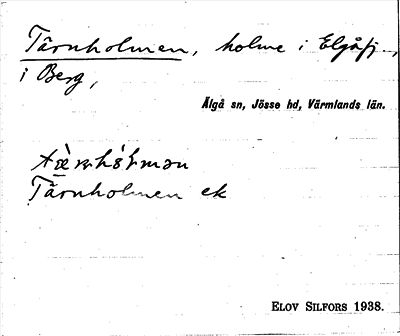 Tärnholmen, holme i Elgåfj.,
i Berg,
Älgå sn, Jösse hd, Värmlands län.
Tärnholmen ek
ELOV SILFORS 1938.